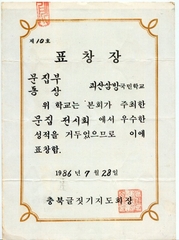 제 10호
표창장
문집부
동상
괴산삼방국민학교
위 학교는 본회가 주최한
문집 전시회에서 우수한
성적을 거두었으므로 이에
표창함.
1986년 7월 28일
충북글짓기지도회장